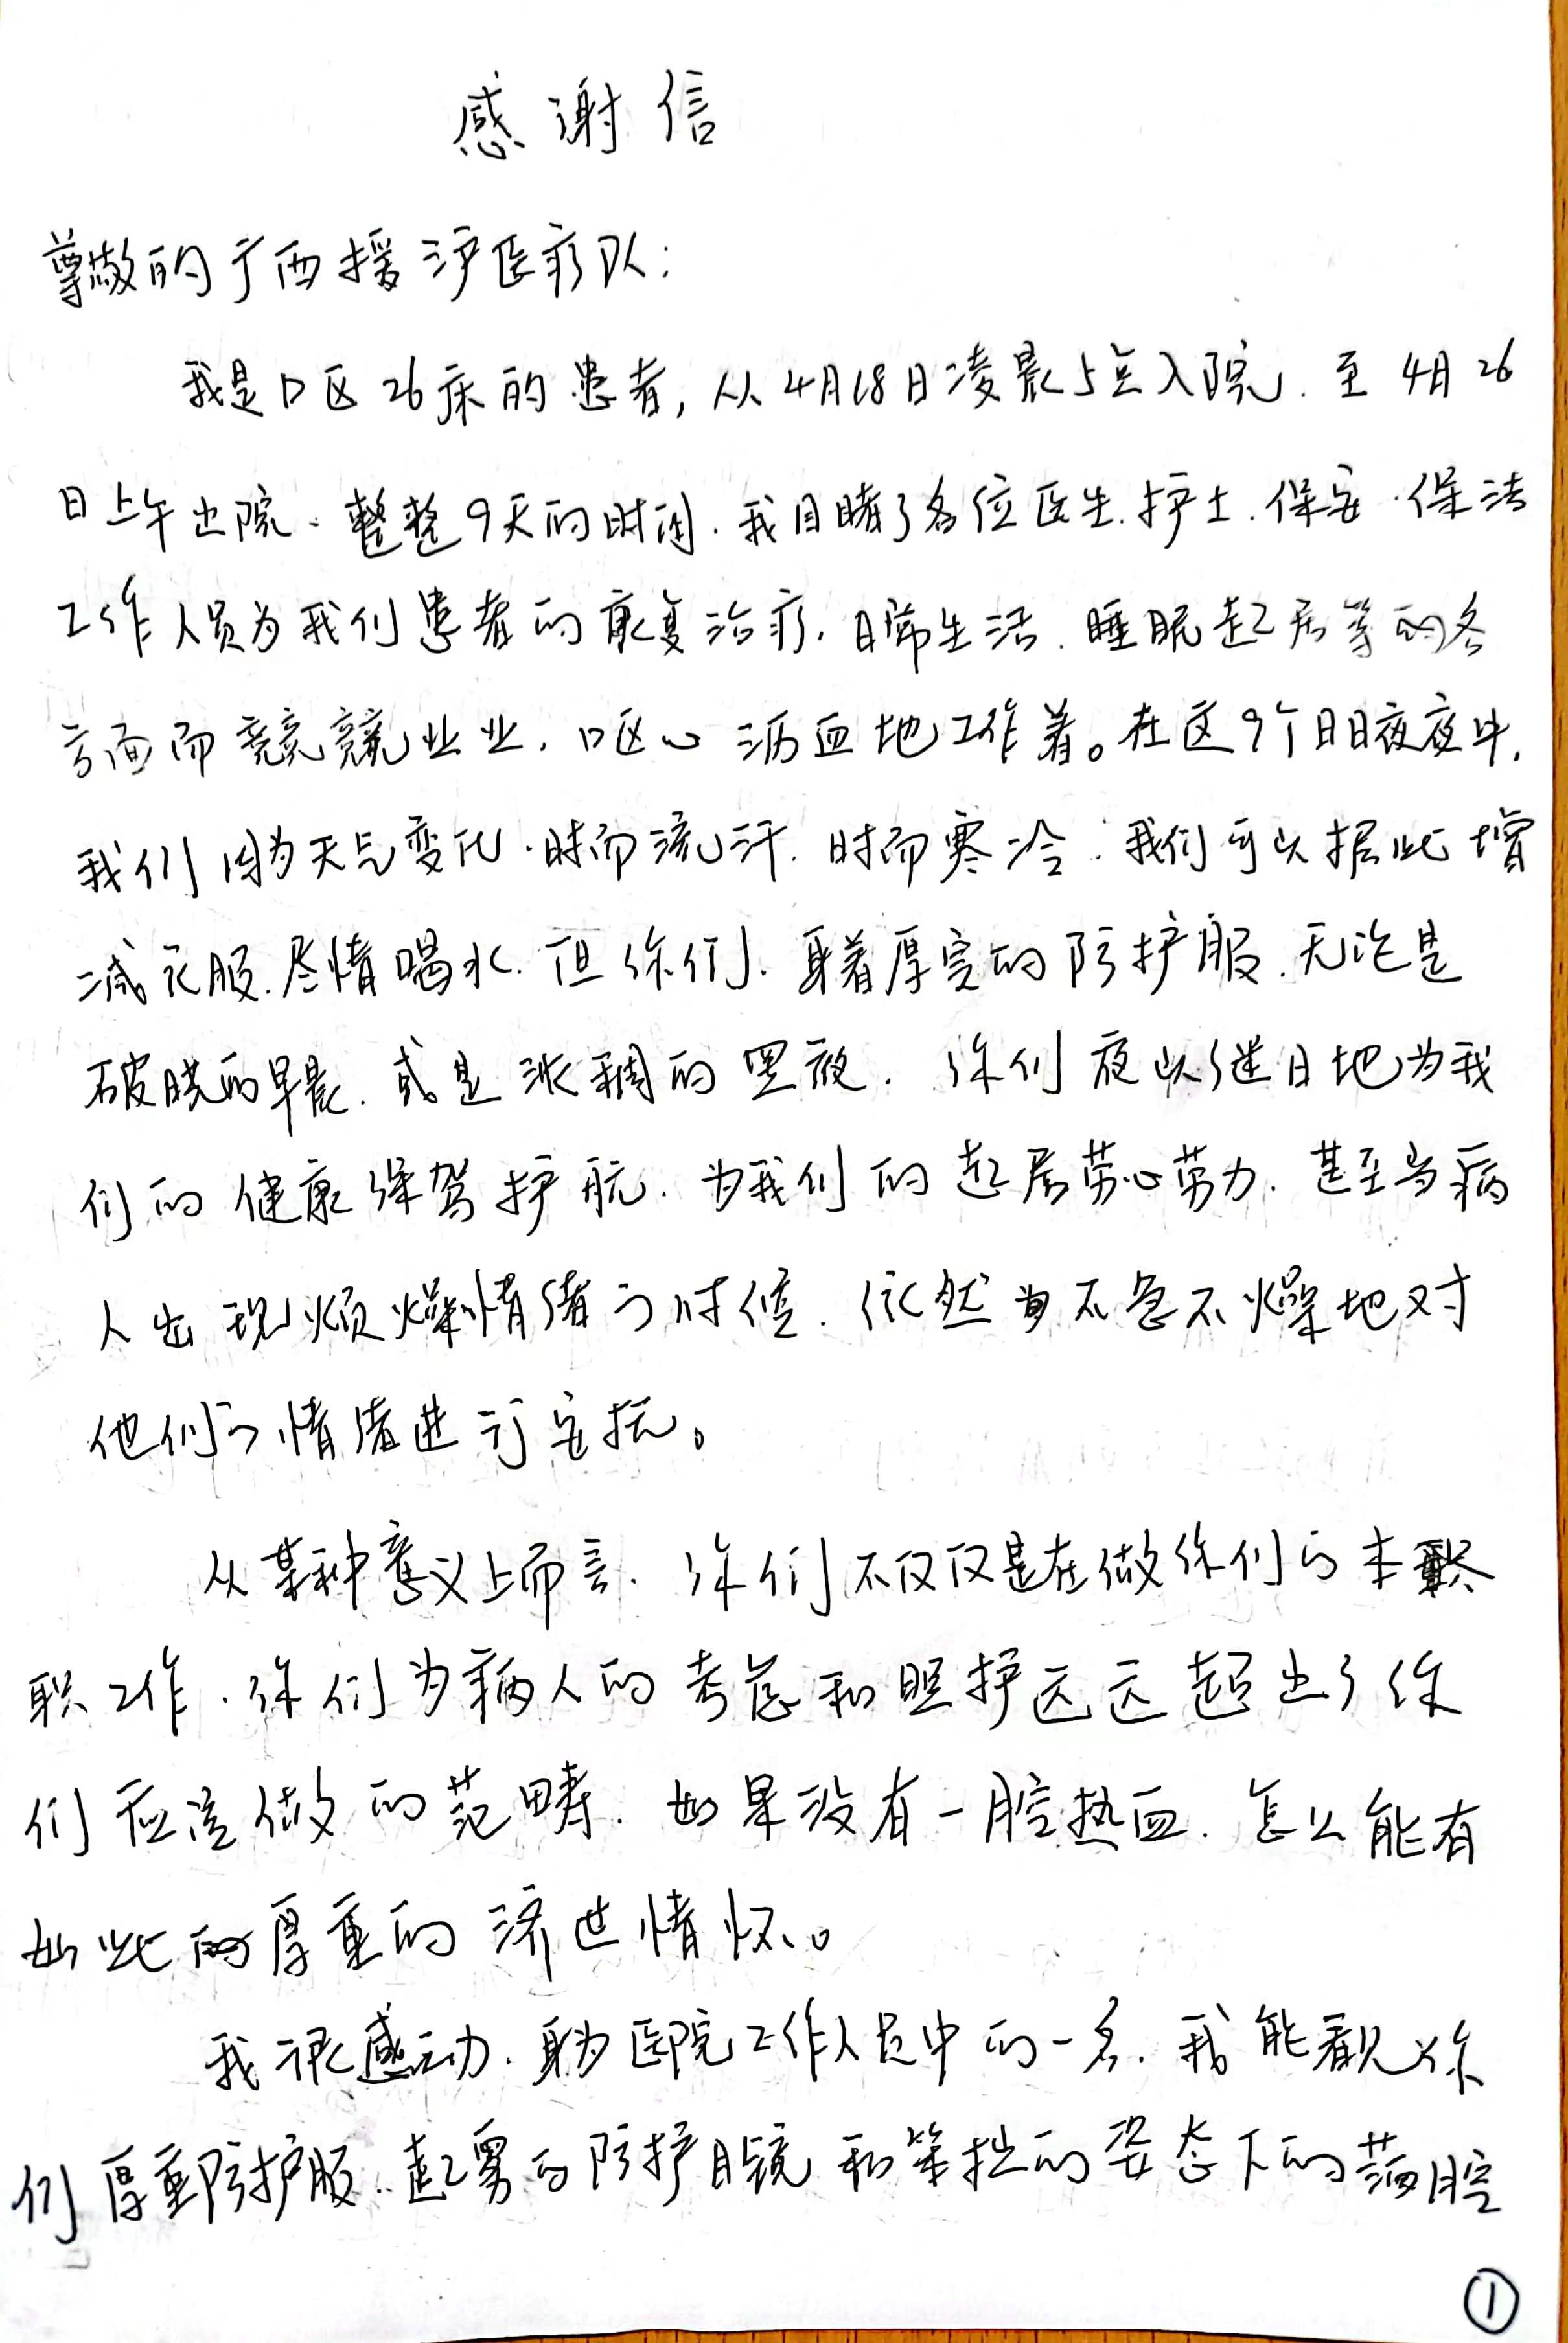 感谢信
尊敬的广西援沪医疗队：
我是D区26床的患者，从4月18日凌晨5点入院．至4月26
日上午出院．整整9天的时间．我目睹了各位医生．护士．保安．保洁
工作人员为我们患者的康复治疗．日常生活．睡眠起居等的各
方面而兢兢业业．呕心沥血地工作着。在这9个日日夜夜中．
我们因为天气变化．时而流汗．时而寒冷．我们可以据此增
减衣服．尽情喝水．但你们．身着厚实的防护服．无论是
破晓的早晨．或是浓稠的黑夜．你们夜以继日地为我
们的健康保驾护航．为我们的起居劳心劳力．甚至当病
人出现烦燥情绪的时候．依然不急不燥地对
他们的情绪进行安抚。
从某种意义上而言．你们不仅仅是在做你们的本
职工作．你们为病人的考虑和照护远远超出了你
们应该做的范畴．如果没有一腔热血．怎么能有
如此的厚重的济世情怀。
我很感动．身为医院工作人员中的一名．我能看见你
们厚重防护服．起雾的防护目镜和笨拙的姿态下的满腔
①